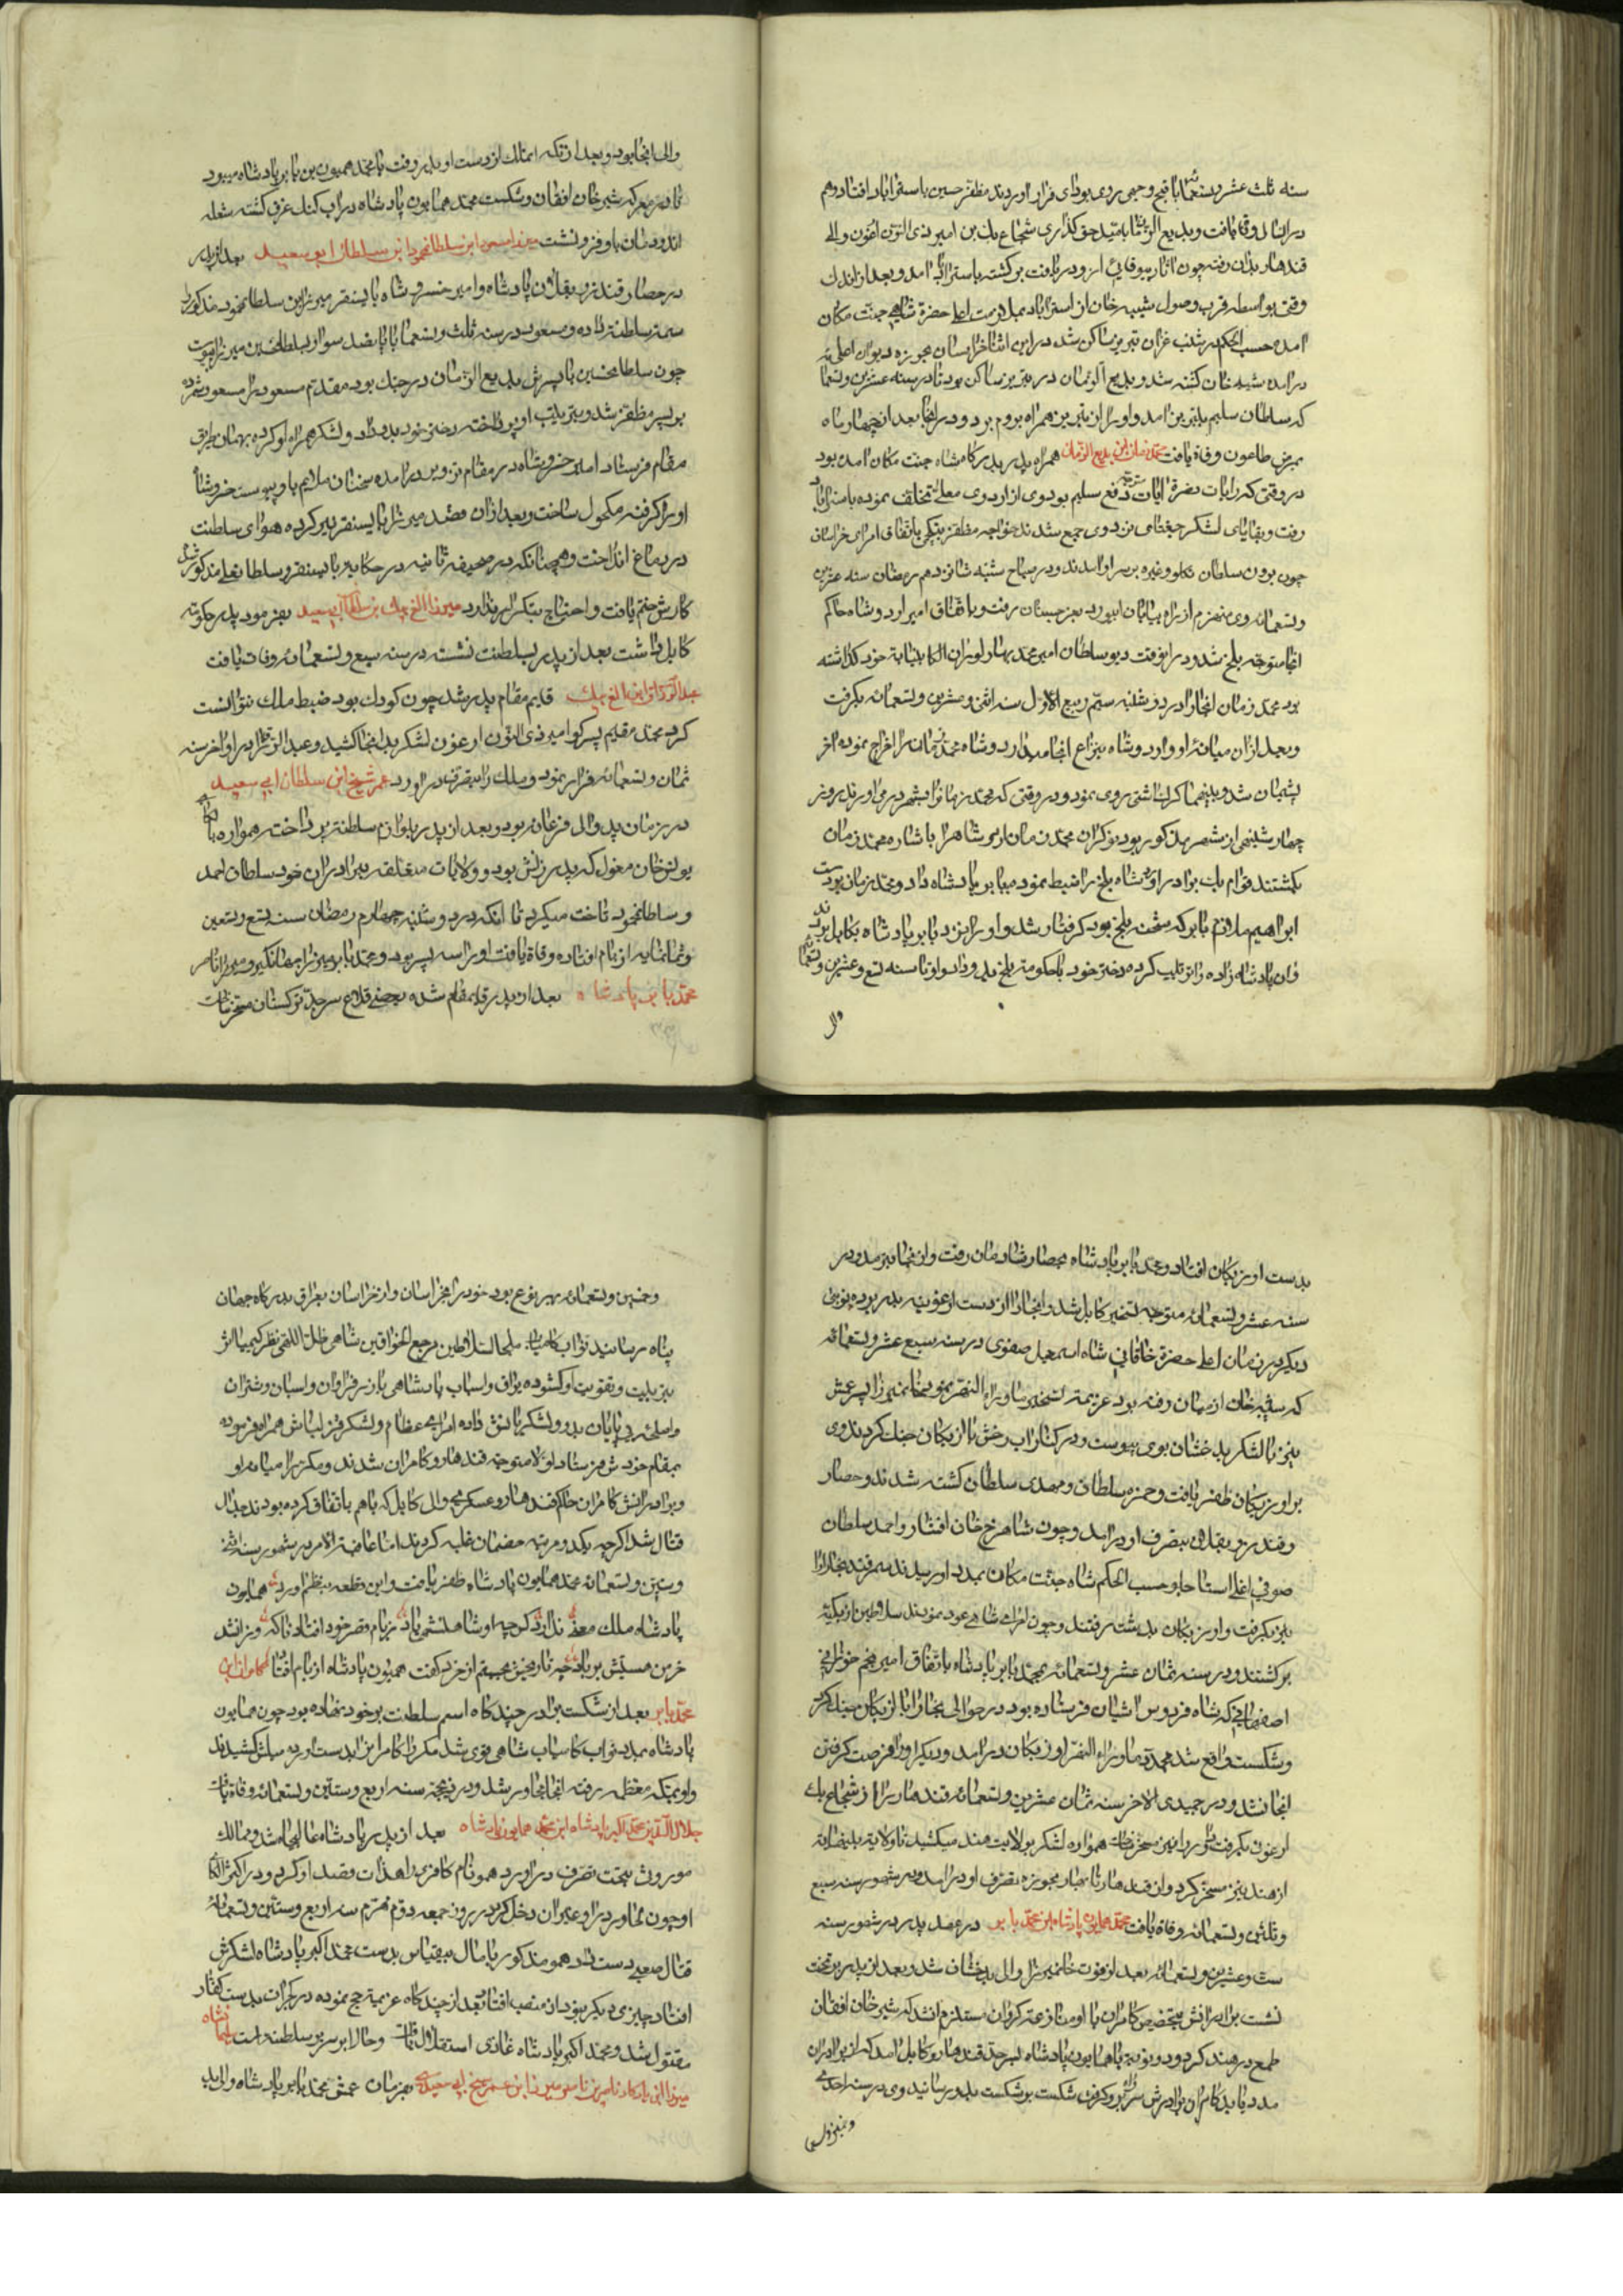 سنه ثلث عشر و تسعمائه با قبح وجهی روی بوادی فرار اوردند مظفر حسین باسترآباد افتاد و هم
در ان سال وفات یافت و بدیع الزمان بامید حق کذاری شجاع بیک بن امیر ذی النون ارغون والی
قندهار بدان رفته چون اثار بیوفائی از و دریافت برکشته باسترآباد امد و بعد از اندک
وقتی بواسطه قرب وصول شیبه خان از استراباد بملازمت اعلی حضرة شاهی جنت مکان
امده حسب الحکم در شنب غزان تبریز ساکن شد در این اثنا خراسان بحوزه دیوان اعلی
در امده شیبه خان کشته شد و بدیع الزمان در تبریز ساکن بود تا در سنه عشرین و تسعمائه
که سلطان سلیم بتبریز امد و او را از تبریز همراه بروم برد و در انجا بعد از چهار ماه
بمرض طاعون وفاة یافت محمد زمان ابن بدیع الزمان همراه پدر بدرکاه شاه جنت مکان امده بود
در وقتی که رایات نصرة ایات متوجه دفع سلیم بود وی از اردوی معلی تخلف نموده باستراباد
رفت و بقایای لشکر جغتای نزد وی جمع شدند خواجه مظفر بتکچی باتفاق امرای خراسان
چون برون سلطان تکلو و غیره بر سر او امدند و در صباح شنبه شانزدهم رمضان سنه عشرین
و تسعمائه وی منهزم از راه بیابان ابیورد بغرجستان رفت و باتفاق امیر اردوشاه حاکم
انجا متوجه بلخ شد و در انوقت دیو سلطان امیر محمد بهارلو را در ان الکا بنیابة خود کذاشته
بود محمد زمان انجا را در دوشنبه سیم ربیع الاول سنه اثنی و عشرین و تسعمائه بکرفت
و بعد از ان میانه او و اردوشاه بنزاع انجامید اردوشاه محمد زمان را اخراج نموده اخر
پشیمان شد و بینهما کرک اشتی روی نمود و در وقتی که محمد زمان را بشهر درمی اوردند روز
چهارشنبهی از شهر مذکور بود نوکران محمد زمان اردوشاه را باشاره محمد زمان
بکشتند قوام بیک برادر اردوشاه بلخ را ضبط نموده ببابر پادشاه داد و محمد زمان بدست
ابراهیم ملازم بابر که شحنه بلخ بود کرفتار شد و او را نزد بابر پادشاه بکابل بردند
و ان پادشاه زاده را تربیت کرده دختر خود با حکومة بلخ بدو داد و او تا سنه تسع و عشرین و تسعمائه
والی
والی انجا بود و بعد از انکه انملک از دست او بدر رفت با محمد همیون بن بابر پادشاه میبود
تا در معرکه شیر خان افغان و شکست محمد همایون پادشاه در اب کنک غرق کشته شعله
اندودمان باو فرو نشست میرزا مسعود ابن سلطان محمود ابن سلطان ابو سعید بعد از پدر
در حصار و قندز و بقلان پادشاه و امیر خسرو شاه بایسنقر میرزا بن سلطان محمود مذکور را
سمة سلطنة داده و مسعود در سنه ثلث و تسعمائه بقصد سواری بسلطان حسین میرزا پیوست
چون سلطان حسین با پسرش بدیع الزمان در جنک بود مقدم مسعود را مسعود شمرده
بر پسر مظفر شد و بتربیت او پرداخته دختر خود بدو داد و لشکر همراه او کرده بهمان طریق
مقام فرستاد اما خسرو شاه در مقام تزویر درامده سخنان ملایم باو پیوست خسرو شاه
او را کرفته مکحول ساخت و بعد از ان قصد میرزا بایسنقر نیز کرده هوای سلطنت
در دماغ انداخت و همچنانکه در صحیفه ثانیه در حکایت بایسنقر و سلطان علی مذکور شد
کارش ختم یافت و احتیاج بتکرار ندارد میرزا الغ بیک بن سلطان ابی سعید بفرموده پدر حکومة
کابل داشت بعد از پدر بسلطنت نشسته در سنه سبع و تسعمائه وفات یافت
عبد الرزاق ابن الغ بیک قایم مقام پدر شد چون کودک بود ضبط ملک نتوانست
کرد محمد مقیم پسر کو امیر ذی النون ارغون لشکر بدانجا کشید و عبد الرزاق در اواخر سنه
ثمان و تسعمائه فرار نمود و ملک را بتصرف در اورد عمر شیخ ابن سلطان ابی سعید
در زمان پدر والی فرغانه بود و بعد از پدر بلوازم سلطنة پرداخت همواره با
یونس خان مغول که پدر زنش بود و ولایات متعلقه ببرادران خود سلطان احمد
و سلطان محمود تاخت میکرد تا انکه در دوشنبه چهارم رمضان سنه تسع و تسعین
و ثمانمائه از بام افتاده وفاة یافت او را سه پسر بود محمد بابر میرزا جهانکیر و میرزا ناصر
محمد بابر پادشاه بعد از پدر قایمقام شده بعضی قلاع سرحد ترکستان مسخر ساخت
بدست اوزبکان افتاد و محمد بابر پادشاه بحصار شادمان رفت و از انجا نیز مدد در
سنه عشر و تسعمائه متوجه تسخیر کابل شد و انجا را از دست ارغونیه بدر برده نوبتی
دیکر در زمان اعلی حضرة خاقانی شاه اسمعیل صفوی در سنه سبع عشر و تسعمائه
که شیبه خان از میان رفته بود عزیمة تسخیر ماوراء النهر نمود خان میرزا پسر عمش
نیز با لشکر بدخشان بوی پیوست و در کنار اب وخش با ازبکان جنک کردند وی
بر اوزبکان ظفر یافت و حمزه سلطان و مهدی سلطان کشته شدند و حصار
و قندز و بقلان بتصرف او در امد و چون شاهرخ خان افشار و احمد سلطان
صوفی اغلی استاجلو حسب الحکم شاه جنت مکان بمدد او رسیدند سمرقند و بخارا را
نیز بکرفت و اوزبکان بدشت رفتند و چون امراء شاهی عود نمودند سلاطین ازبکیه
برکشتند و در سنه ثمان عشر و تسعمائه محمد بابر پادشاه باتفاق امیر نجم خوزانی
اصفهانی که شاه فردوس اشیان فرستاده بود در حوالی بخارا با ازبکان جنک کرد
و شکست واقع شد مجمدا ماوراء النهر اوزبکان در امد و دیکر او را فرصت کرفتن
انجا نشد و در جمیدی الاخر سنه ثمان عشرین و تسعمائه قندهار را از شجاع بیک
ارغون بکرفت و زمین داور را نیز مسخر ساخت همواره لشکر بولایت هند میکشید تا ولایة
از هند نیز مسخر کرد و از قندهار تا بهار بحوزه تصرف او در امد و در شهور سنه سبع
و ثلثین و تسعمائه وفاة یافت محمد همایون پادشاه ابن محمد بابر در عهد پدر در شهور سنه
ست و عشرین و تسعمائه بعد از فوت خان میرزا والی بدخشان شد و بعد از پدر بر تخت
نشست برادرانش بتخصیص کامران با او منازعة کردن مستلزم انشد که شیر خان افغان
طمع در هند کرد و دو نوبة با همایون پادشاه بسرحد قندهار و کابل امد که از برادران
مدد یابد کامران برادرش سر راه برو کرفت شکست بر شکست بدو رسانید وی در سنه احدی
و خمسین و تسعمائه
و خمسین و تسعمائه بهر نوع بود خود را بخراسان و از خراسان بعراق بدرکاه جهان
پناه رسانید نواب کامیاب ملجا السلاطین مرجع الخواقین شاهی ظل اللهی نظر کیمیا اثر
بتربیت و تقویت او کشوده یراق و اسباب پادشاهی با زر فراوان و اسبان و شتران
و اسلحه بی پایان بدو و لشکریانش داده امراء عظام و لشکر قزلباش همراه فرموده
بمقام خودش فرستاد اولا متوجه قندهار و کامران شدند و مکررا میانه او
و برادرانش کامران حاکم قندهار و عسکری والی کابل که باهم باتفاق کرده بودند جدال
قتال شد اکرچه یکدو مرتبه خصمان غلبه کردند اما عاقبة الامر در شهور سنه اثنی
و ستین و تسعمائه محمد همایون پادشاه ظفر یافت و این قطعه بنظم اورد همایون
پادشاه ملک معنی ندارد کرچه او شاهنشهی یاد ز بام قصر خود افتاد ناکه و زانشد
خرمن هستیش بر باد چه تاریخش بجستم از خرد کفت همیون پادشاه از بام افتاد کامران ابن
محمد بابر بعد از شکست برادر چند کاه اسم سلطنت بر خود نهاده بود چون همایون
پادشاه بمدد نواب کامیاب شاهی قوی شد مکررا کامران بدست اورده میلش کشیدند
و او بمکه معظمه رفته انجا مجاور شد و در ذیحجه سنه اربع و ستین و تسعمائه وفاة یافت
جلال الدین محمد اکبر پادشاه ابن محمد همایون پادشاه بعد از پدر پادشاه عالیجاه شد و ممالک
موروثی بتحت تصرف در اورد همو نام کافری از اهل ذات قصد او کرد و در اکثر الکای
او چون لهاور و در اوغیران دخل کرد در روز جمعه دوم محرم سنه اربع و ستین و تسعمائه
قتال صعب دست داد همو مذکور با مال بیقیاس بدست محمد اکبر پادشاه لشکرش
افتاد چیزی دیکر بیرم خان منصب افتاد بعد از چند کاه عزیمة حج نموده در کجرات بدست کفار
مقتول شد و محمد اکبر پادشاه غازی استقلال یافت و حالا بر سریر سلطنة است
میرزا یادکار ناصر بن ناصر میرزا ابن عمر شیخ ابی سعید در زمان عمش محمد بابر پادشاه والی بد